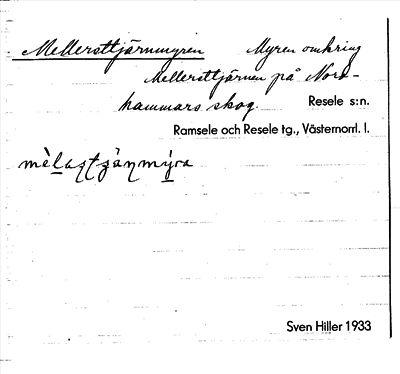 Mellersttjärnmyren Myren omkring
Mellersttjärnen på Nord-
hammars skog. Resele s:n.
Ramsele och Resele tg., Västernorrl. l.
Sven Hiller 1933